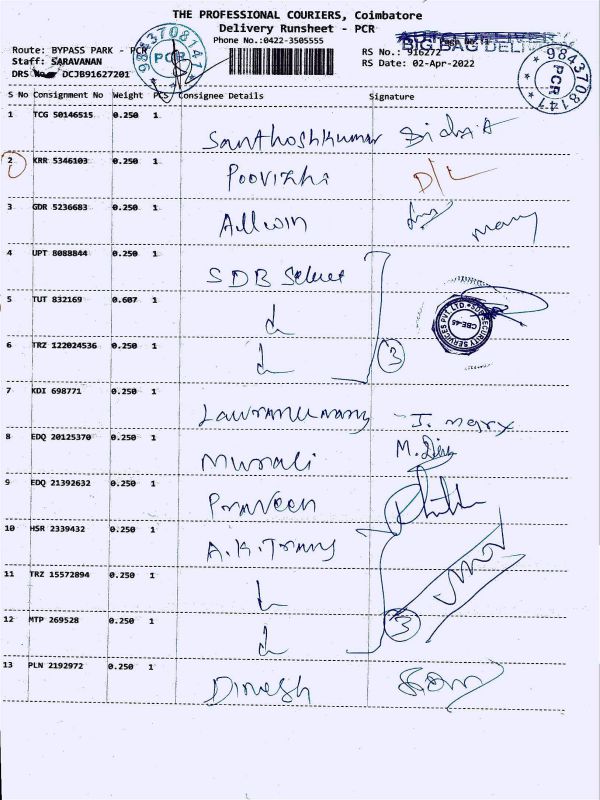 THE PROFESSIONAL COURIERS, Coimbatore
Delivery Runsheet - PCR
Phone No.:0422-3505555
AUTO DELIVERY
BIG BAG DELIVERY
Route: BYPASS PARK - PCR
Staff: SARAVANAN
DRS No. DCJB91627201
RS No.: 916272
RS Date: 02-Apr-2022
9843708147
PCR
9843708147
PCR
S No Consignment No Weight PCS Consignee Details Signature
1 TCG 50146515 0.250 1 Santhoshkumar
2 KRR 5346103 0.250 1 Poovizhi D/L
3 GDR 5236683 0.250 1 Allwin mary
4 UPT 8088844 0.250 1 SDB
5 TUT 832169 0.607 1
SECURITY SERVICES PVT. LTD.
CBE-45
6 TRZ 122024536 0.250 1 3
7 KDI 698771 0.250 1 J. mary
8 EDQ 20125370 0.250 1 Murali
9 EDQ 21392632 0.250 1 Praveen
10 HSR 2339432 0.250 1 A.K.Trans
11 TRZ 15572894 0.250 1
12 MTP 269528 0.250 1 3
13 PLN 2192972 0.250 1 Dinesh